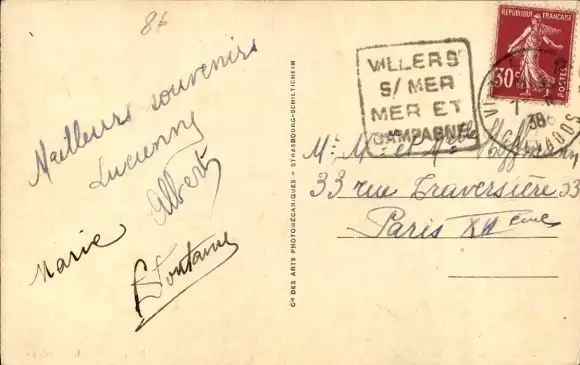 86
Meilleurs souvenirs
Lucienne
Albert
Marie
Fontaine
Cie DES ARTS PHOTOMÉCANIQUES - STRASBOURG-SCHILTIGHEIM
VILLERS
S/ MER
MER ET
CAMPAGNE
REPUBLIQUE FRANÇAISE
30c
POSTES
38
CALVADOS
Mr Me et Melle Hoffmann
33 rue Traversière 33
Paris XII ème